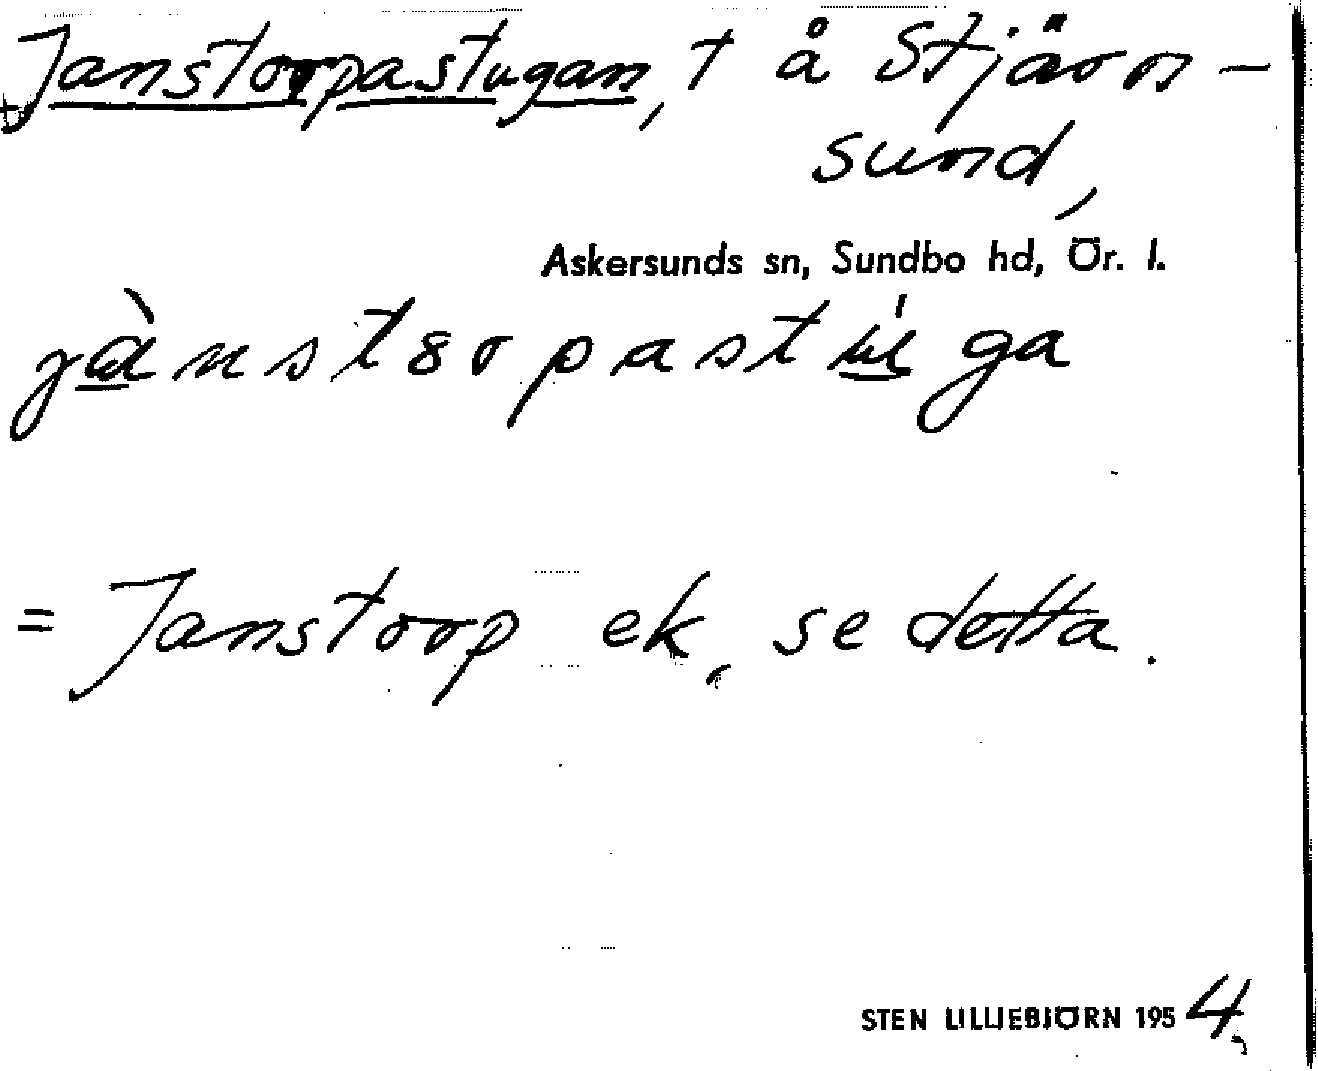 Janstorpastugan, t å Stjärn-
sund,
Askersunds sn, Sundbo hd, Ör. l.
jànst8rpastúga
= Janstorp ek, se detta.
STEN LILLIEBJÖRN 1954